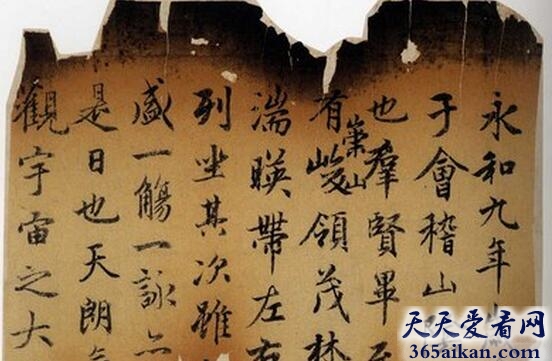 永和九年
于會稽山
也羣賢畢至
有崇山峻領茂林
湍暎帶左右
列坐其次雖
盛一觴一詠亦
是日也天朗氣
觀宇宙之大
天天爱看网
365aikan.com